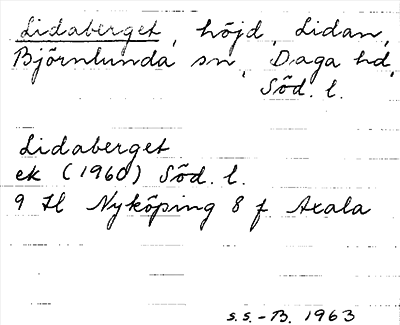 Lidaberget, höjd, Lidan,
Björnlunda sn, Daga hd,
Söd. l.
Lidaberget
ek (1960) Söd. l.
9 H Nyköping 8 f Axala
S.S.-B. 1963